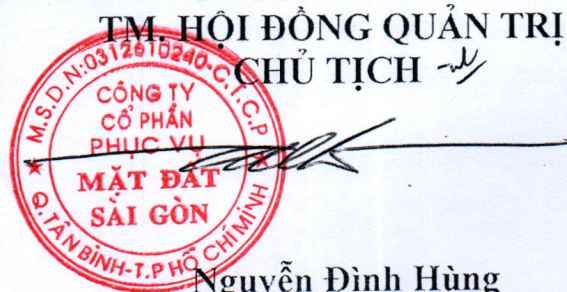 TM. HỘI ĐỒNG QUẢN TRỊ
CHỦ TỊCH
M.S.D.N:0312610240-C.T.C.P
CÔNG TY
CỔ PHẦN
PHỤC VỤ
MẶT ĐẤT
SÀI GÒN
Q.TÂN BÌNH-T.P HỒ CHÍ MINH
Nguyễn Đình Hùng